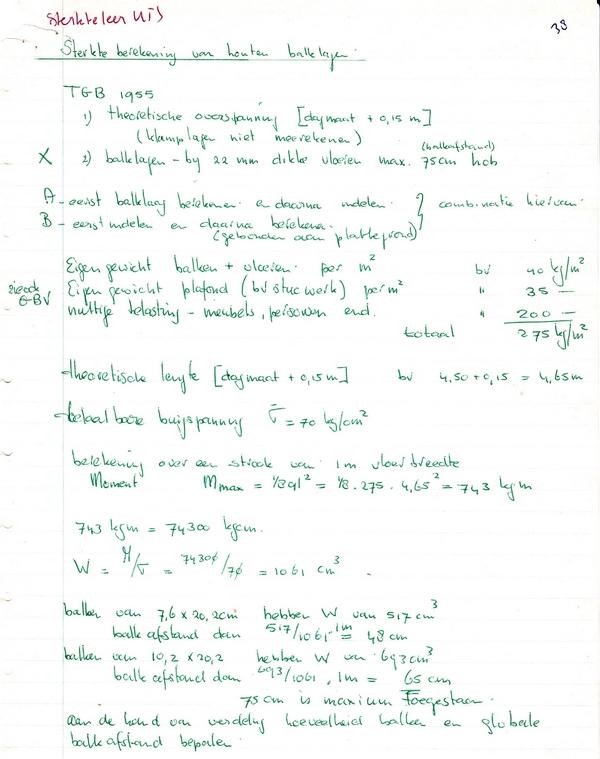 Sterkteleer UTS
38
Sterkte berekening van houten balklagen.
TGB 1955
1) theoretische overspanning [dagmaat + 0,15 m]
(klamplagen niet meerekenen)
(balkafstand)
X 2) balklagen - by 22 mm dikke vloeren max. 75cm hoh
A - eerst balklaag berekenen en daarna indelen. } combinatie hiervan.
B - eerst indelen en daarna berekenen.
(gebonden aan plattegrond)
Eigen gewicht balken + vloeren per m² bv 40 kg/m²
zie ook GBV
Eigen gewicht plafond (bv stucwerk) per m² " 35 —
nuttige belasting - meubels, personen end. " 200 —
totaal 275 kg/m²
theoretische lengte [dagmaat + 0,15m] bv 4,50 + 0,15 = 4,65m
toelaatbare buigspanning σ̄ = 70 kg/cm²
berekening over een strook van 1m vloerbreedte
Moment Mmax = 1/8ql² = 1/8 . 275 . 4,65² = 743 kgm
743 kgm = 74300 kgcm.
W = M/σ = 74300/70 = 1061 cm³
balken van 7,6 x 20,2cm hebben W van 517 cm³
balkafstand dan 517/1061 . 1m = 48 cm
balken van 10,2 x 20,2 hebben W van 693 cm³
balkafstand dan 693/1061 . 1m = 65 cm
75 cm is maxium toegestaan.
aan de hand van verdeling hoeveelheid balken en globale
balkafstand bepalen.